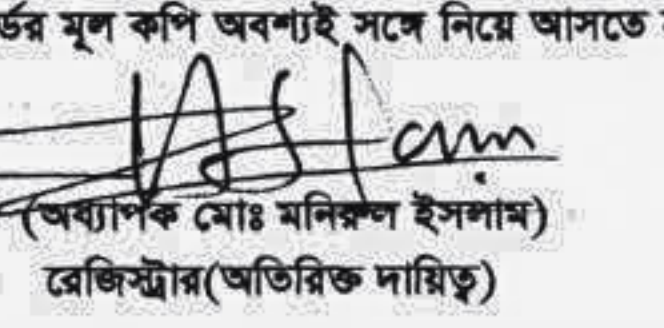 মূল কপি অবশ্যই সঙ্গে নিয়ে আসতে
(অধ্যাপক মোঃ মনিরুল ইসলাম)
রেজিস্ট্রার(অতিরিক্ত দায়িত্ব)